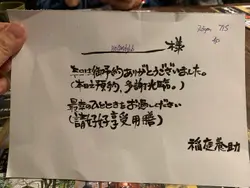 様
7:30pm 7/5
4p
本日は御予約ありがとうございました。
(本日主預約、多謝光臨。)
最高のひとときをお過し下さい
(請好好享受用膳)
稲庭養助